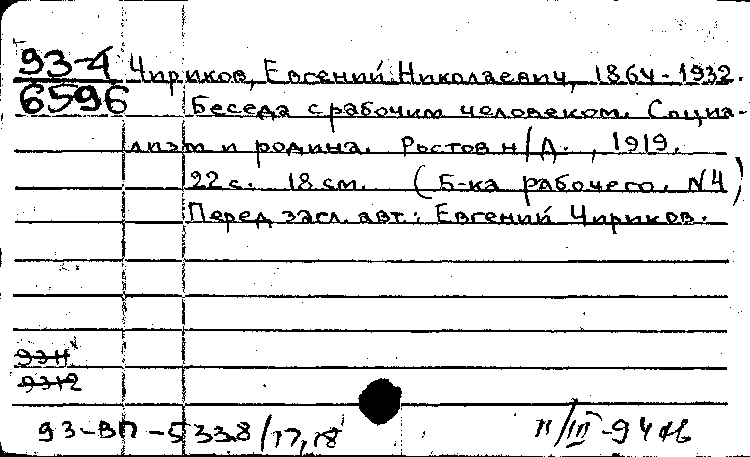 93-4 Чириков, Евгений Николаевич, 1864-1932.
6596 Беседа с рабочим человеком. Социа-
лизм и родина. Ростов н/Д., 1919.
22 с. 18 см. (Б-ка рабочего. N4)
Перед загл. авт.: Евгений Чириков.
9311
9312
93-ВП-5338/17,18 11/III-94